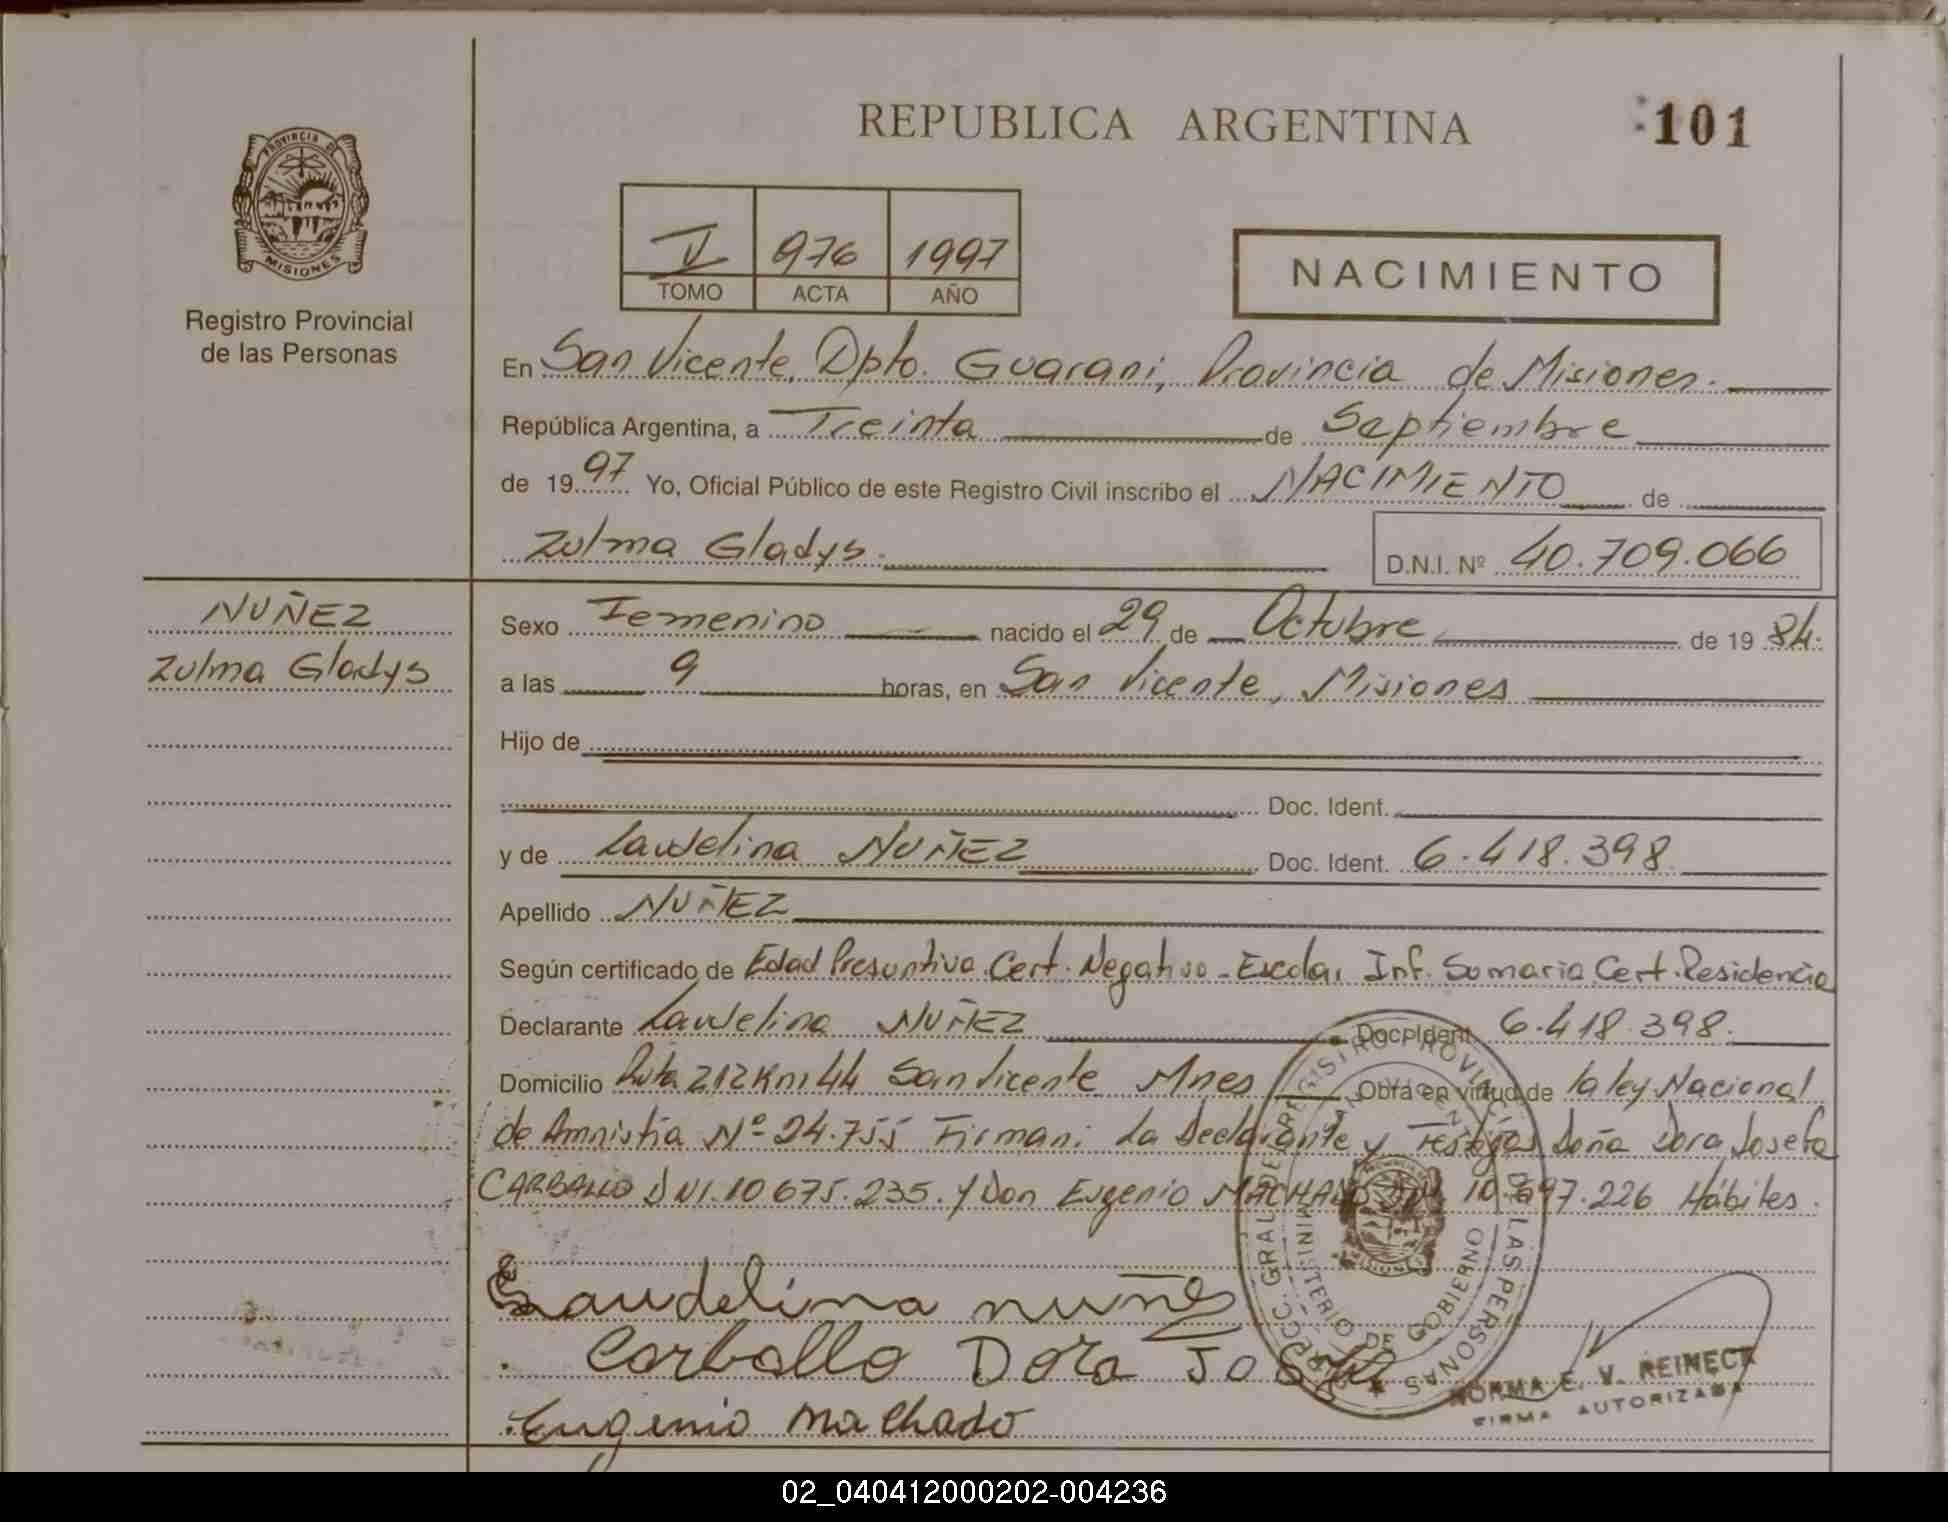 REPUBLICA ARGENTINA
101
PROVINCIA DE
MISIONES
Registro Provincial
de las Personas
V 976 1997
TOMO ACTA AÑO
NACIMIENTO
En San Vicente, Dpto. Guarani, Provincia de Misiones.
República Argentina, a Treinta de Septiembre
de 1997 Yo, Oficial Público de este Registro Civil inscribo el NACIMIENTO de
Zulma Gladys. D.N.I. Nº 40.709.066
NUÑEZ
Zulma Gladys
Sexo Femenino nacido el 29 de Octubre de 1984.
a las 9 horas, en San Vicente, Misiones
Hijo de
Doc. Ident.
y de Laudelina NUÑEZ Doc. Ident. 6.418.398
Apellido NUÑEZ
Según certificado de Edad Presuntiva. Cert. Negativo - Escolar Inf. Sumaria Cert. Residencia
Declarante Laudelina NUÑEZ Doc. Ident. 6.418.398.
Domicilio Ruta 212 Km 44 San Vicente Mnes Obra en virtud de la ley Nacional
de Amnistía Nº 24.755 Firman: La Declarante y Testigos Doña Dora Josefa
CARBALLO DNI. 10.675.235. y Don Eugenio MACHADO 10.697.226 Hábiles.
Laudelina nuñez
Carballo Dora
Eugenio Machado
REGISTRO PROVINCIAL DE LAS PERSONAS
MINISTERIO DE GOBIERNO
MISIONES
NORMA E. V. REINECK
FIRMA AUTORIZADA
02_040412000202-004236